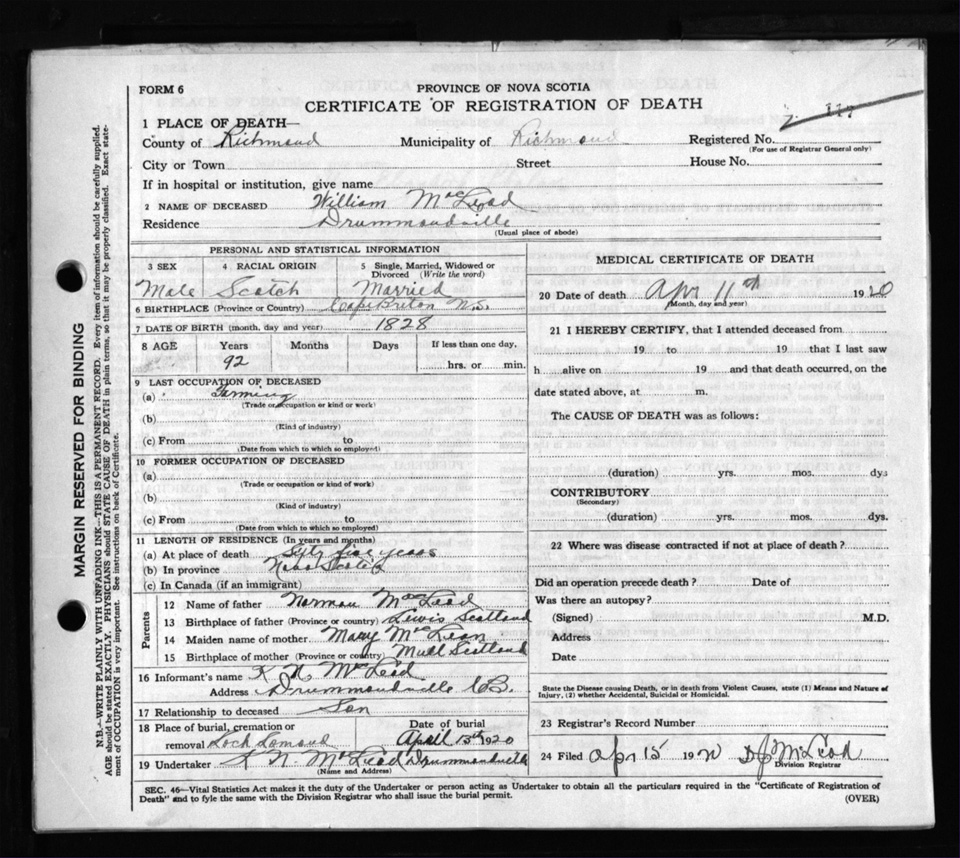 FORM 6
PROVINCE OF NOVA SCOTIA
CERTIFICATE OF REGISTRATION OF DEATH
1 PLACE OF DEATH—
County of Richmond Municipality of Richmond Registered No. 117
(For use of Registrar General only)
City or Town Street House No.
If in hospital or institution, give name
2 NAME OF DECEASED William McLeod
Residence Drummondville
(Usual place of abode)
PERSONAL AND STATISTICAL INFORMATION
3 SEX 4 RACIAL ORIGIN 5 Single, Married, Widowed or Divorced (Write the word)
Male Scotch Married
6 BIRTHPLACE (Province or Country) Cape Breton N.S.
7 DATE OF BIRTH (month, day and year) 1828
8 AGE Years Months Days If less than one day,
92 hrs. or min.
9 LAST OCCUPATION OF DECEASED
(a) Farming
(Trade or occupation or kind or work)
(b)
(Kind of industry)
(c) From to
(Date from which to which so employed)
10 FORMER OCCUPATION OF DECEASED
(a)
(Trade or occupation or kind of work)
(b)
(Kind of industry)
(c) From to
(Date from which to which so employed)
11 LENGTH OF RESIDENCE (In years and months)
(a) At place of death five years
(b) In province Nova Scotia
(c) In Canada (if an immigrant)
Parents
12 Name of father Norman McLeod
13 Birthplace of father (Province or country) Lewis Scotland
14 Maiden name of mother Mary McLean
15 Birthplace of mother (Province or country) Mull Scotland
16 Informant's name K N McLeod
Address Drummondville CB.
17 Relationship to deceased Son
18 Place of burial, cremation or removal Loch Lomond
Date of burial April 13th 1920
19 Undertaker K N. McLeod Drummondville
(Name and Address)
MEDICAL CERTIFICATE OF DEATH
20 Date of death Apr 11th 1920
(Month, day and year)
21 I HEREBY CERTIFY, that I attended deceased from
19 to 19 that I last saw
h alive on 19 and that death occurred, on the
date stated above, at m.
The CAUSE OF DEATH was as follows:
(duration) yrs. mos. dys
CONTRIBUTORY
(Secondary)
(duration) yrs. mos. dys.
22 Where was disease contracted if not at place of death?
Did an operation precede death? Date of
Was there an autopsy?
(Signed) M.D.
Address
Date
State the Disease causing Death, or in death from Violent Causes, state (1) Means and Nature of
Injury, (2) whether Accidental, Suicidal or Homicidal.
23 Registrar's Record Number
24 Filed Apr 15 1920 D J McLeod
Division Registrar
SEC. 46—Vital Statistics Act makes it the duty of the Undertaker or person acting as Undertaker to obtain all the particulars required in the "Certificate of Registration of
Death" and to fyle the same with the Division Registrar who shall issue the burial permit.
(OVER)
MARGIN RESERVED FOR BINDING
N.B.—WRITE PLAINLY WITH UNFADING INK—THIS IS A PERMANENT RECORD. Every item of information should be carefully supplied.
AGE should be stated EXACTLY. PHYSICIANS should STATE CAUSE OF DEATH in plain terms, so that it may be properly classified. Exact state-
ment of OCCUPATION is very important. See instructions on back of Certificate.